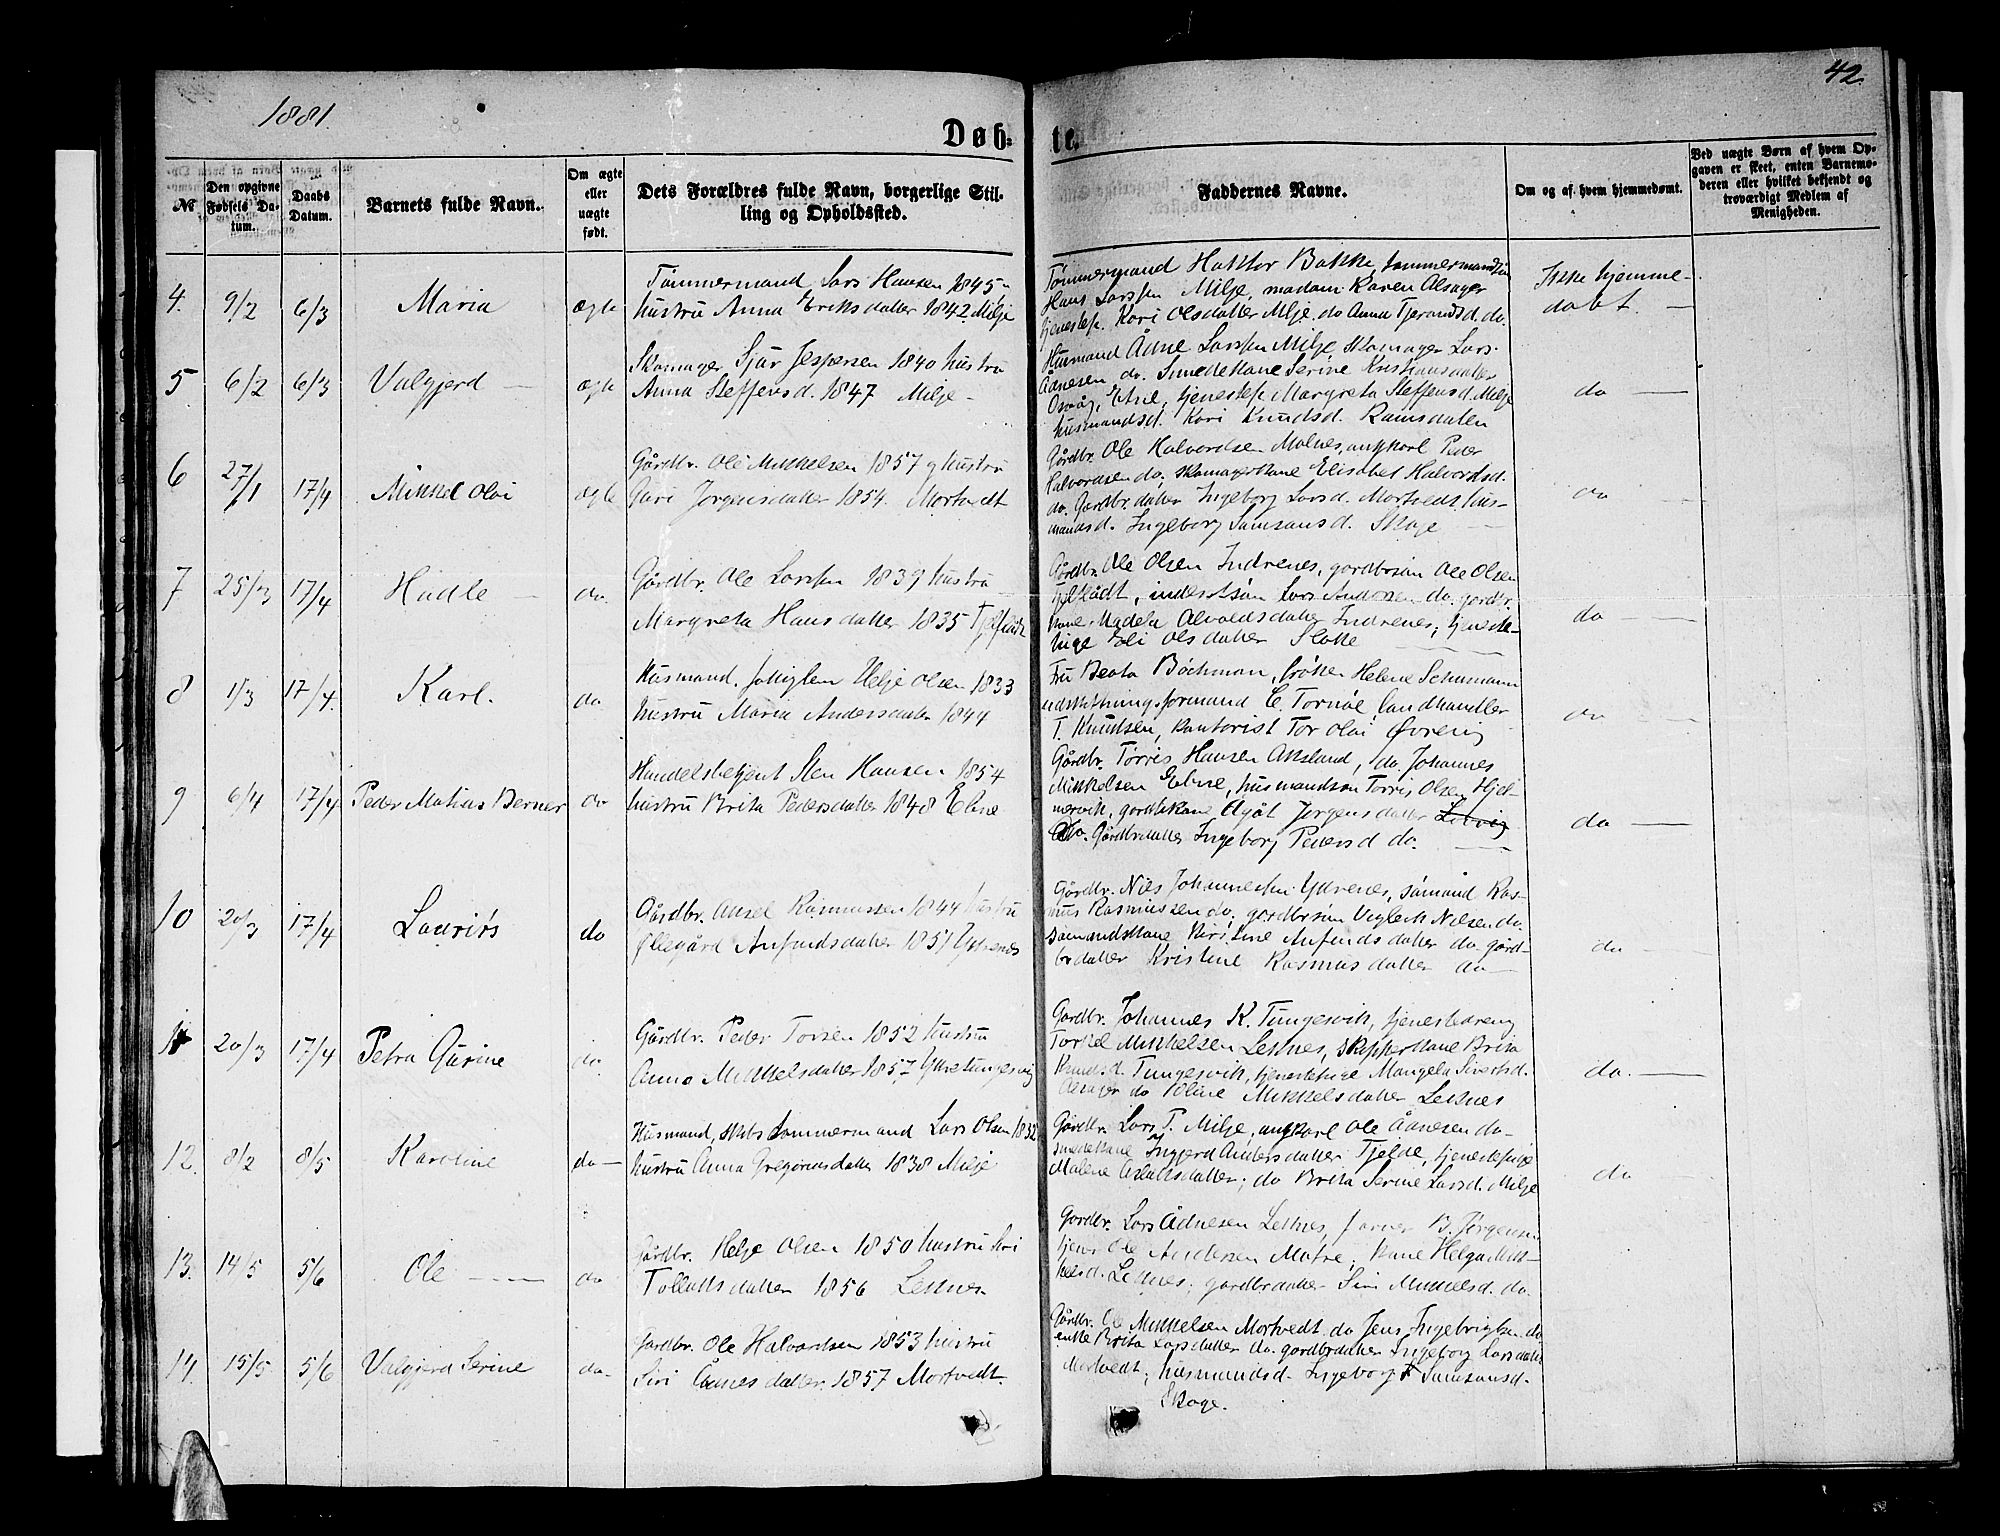 42.
1881.
Døb-
te.
№
Den opgivne
Fødsels Da-
tum.
Daabs
Datum.
Barnets fulde Navn.
Om ægte
eller
uægte
født.
Dets Forældres fulde Navn, borgerlige Stil-
ling og Opholdssted.
Faddernes Navne.
Om og af hvem hjemmedømt.
Ved uægte Børn af hvem Op-
gaven er skeet, enten Barnemo-
deren eller hvilket bekjendt og
troværdigt Medlem af
Menigheden.
4. 9/2 6/3 Maria ægte
Tømmermand Lars Hansen 1845
hustru Anna Eriksdatter 1842. Milje
Tømmermand Haktor Bakke, tømmermandsøn
Hans Larssen Milje, madam Karen Alsager
tjenestep. Kari Olsdatter Milje, do Anna Tjerandsd. do.
Ikke hjemme-
døbt.
5 6/2 6/3 Valgjerd ægte
Skomager Sjur Jespersen 1840 hustru
Anna Steffensd. 1847 Milje
Husmand Ådne Larssen Milje, skomager Lars
Ådnesen do. Smedekone Serine Kristiansdatter
Osvåg, Etne, tjenestep. Margreta Steffensd. Milje
husmandsd. Kari Knudsd. Ramsdalen
do
6 27/1 17/4 Mikkel Olai ægte
Gårdbr. Ole Mikkelsen 1857 og hustru
Guri Jørgensdatter 1854. Mortvedt
Gårdbr. Ole Halvordsen Malnes, ungkarl Peder
Halvordsen do. skomagerkone Elisabet Halvordsd.
do. Gårdbr.datter Ingeborg Larsd. Mortvedt, hus-
mandsd. Ingeborg Samsonsd. Skoge
do
7 25/3 17/4 Hadle do.
Gårdbr. Ole Larssen 1839 hustru
Margreta Hansdatter 1835 Tjelflåt
Gårdbr. Ole Olsen Indrenes, gårdbrsøn Ole Olsen
Tjelflådt, inderstsøn Lars Andersen do. gårdbr.
kone Madela Alvaldsdatter Indrenes, tjeneste-
pige Eli Olsdatter Slotte
do
8 1/3 17/4. Karl. do
Husmand. Helje Olsen 1833
hustru Maria Andersdatter 1844
Fru Beata Bøchman, frøken Helene Schumann
udskiftningsformand C. Tornøe, landhandler
T. Knudsen, kontorist Tor Olai Øvrevig
do
9 6/4 17/4 Peder Matias Berner do
Handelsbetjent Sten Hansen 1854
hustru Brita Pedersdatter 1848 Etne
Gårdbr. Tørris Hansen Aksland, do. Johannes
Mikkelsen Etne, husmandsøn Torris Olsen Hjel-
mervik, gårdbr.kone Agåt Jørgensdatter
do. Gårdbr.datter Ingeborg Pedersd do.
do
10 20/3 17/4 Laurits do
Gårdbr. Aksel Rasmussen 1844 hustru
Øllegård Anfindsdatter 1851 Ytrenes
Gårdbr. Nils Johannessen Ytrenes, sømand Ras-
mus Rasmussen do, gårdbrsøn Nilsen do.
sømandskone Kirstine Anfindsdatter do gård-
brdatter Kristine Rasmusdatter do
do
11 20/3 17/4 Petra Gurine do.
Gårdbr. Peder Torsen 1852 hustru
Anna Mikkelsdatter 1857 Ytretungesvig
Gårdbr. Johannes K. Tungesvik, tjenestedreng
Torkel Mikkelsen Leknes, skipperkone Brita
Knudsd. Tungesvik, tjenestepige Mangela Sivertsd.
Alsager do Oline Mikkelsdatter Leknes
do.
12. 8/2 8/5 Karoline do
Husmand, skibstømmermand Lars Olsen 1832
hustru Anna Gregoriusdatter 1838 Milje
Gårdbr. Lars T. Milje, ungkarl Ole Ådnesen do
smedekone Ingjerd Andersdatter Tjelde, tjenestepige
Malene Aslaksdatter, do Brita Serine Larsd. Milje
do
13. 14/5 5/6 Ole do
Gårdbr. Helje Olsen 1850 hustru Siri
Tollaksdatter 1856 Leknes
Gårdbr. Lars Ådnesen Leknes, farver B. Jørgensen
tjener Ole Andersen Matre, kone Helga Mik-
kelsd. Leknes, gårdbrdatter Siri Mikkelsd. do.
14. 15/5 5/6 Valgjerd Serine do
Gårdbr. Ole Halvardsen 1853 hustru
Siri Ådnesdatter 1857 Mortvedt.
Gårdbr. Ole Mikkelsen Mortvedt do Jens Ingebrigtsen do
enke Brita Larsdatter do. gårdbrdatter Ingeborg Larsdatter
Mortvedt, husmandsd. Ingeborg Samsonsd.
Skoge.